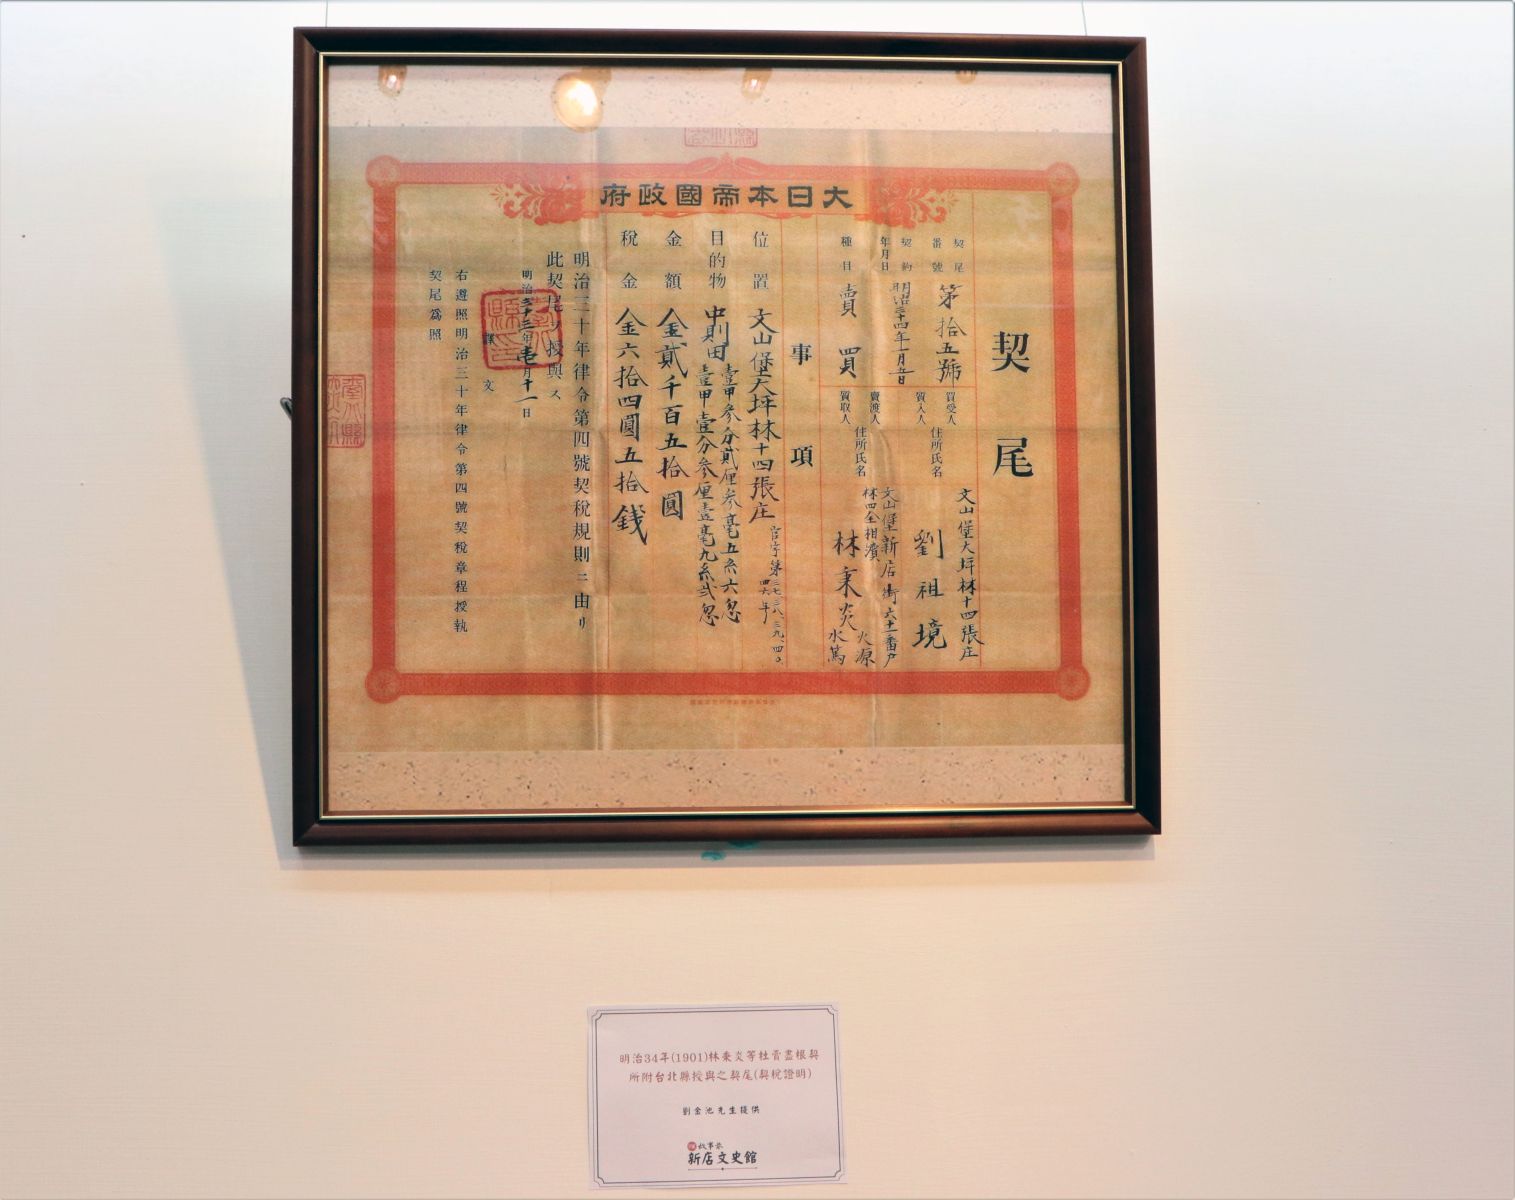 大日本帝國政府
契尾
契尾番號
第拾五號
買受人
質入人
住所氏名
文山堡大坪林十四張庄
劉祖境
契約年月日
明治三十四年一月
種目
賣買
賣渡人
質取人
住所氏名
文山堡新店街六十一番戶
林秉炎
火源
水篤
事項
位置
文山堡大坪林十四張庄
目的物
中則田
壹甲參分貳厘參毫五糸六忽
壹甲壹分參厘壹毫九糸弐忽
金額
金貳千百五拾圓
稅金
金六拾四圓五拾錢
明治三十年律令第四號契稅規則ニ由リ
此契尾ヲ授與ス
明治三十三年壱月十一日
譯文
右遵照明治三十年律令第四號契稅章程授執
契尾為照
明治34年(1901)林秉炎等杜賣盡根契
所附台北縣授與之契尾(契稅證明)
劉金池先生提供
故事
新店文史館